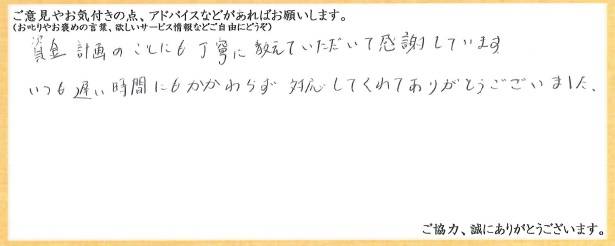 ご意見やお気付きの点、アドバイスなどがあればお願いします。
(お叱りやお褒めの言葉、欲しいサービス情報などご自由にどうぞ)
資金計画のことにも丁寧に教えていただいて感謝しています
いつも遅い時間にもかかわらず対応してくれてありがとうございました。
ご協力、誠にありがとうございます。